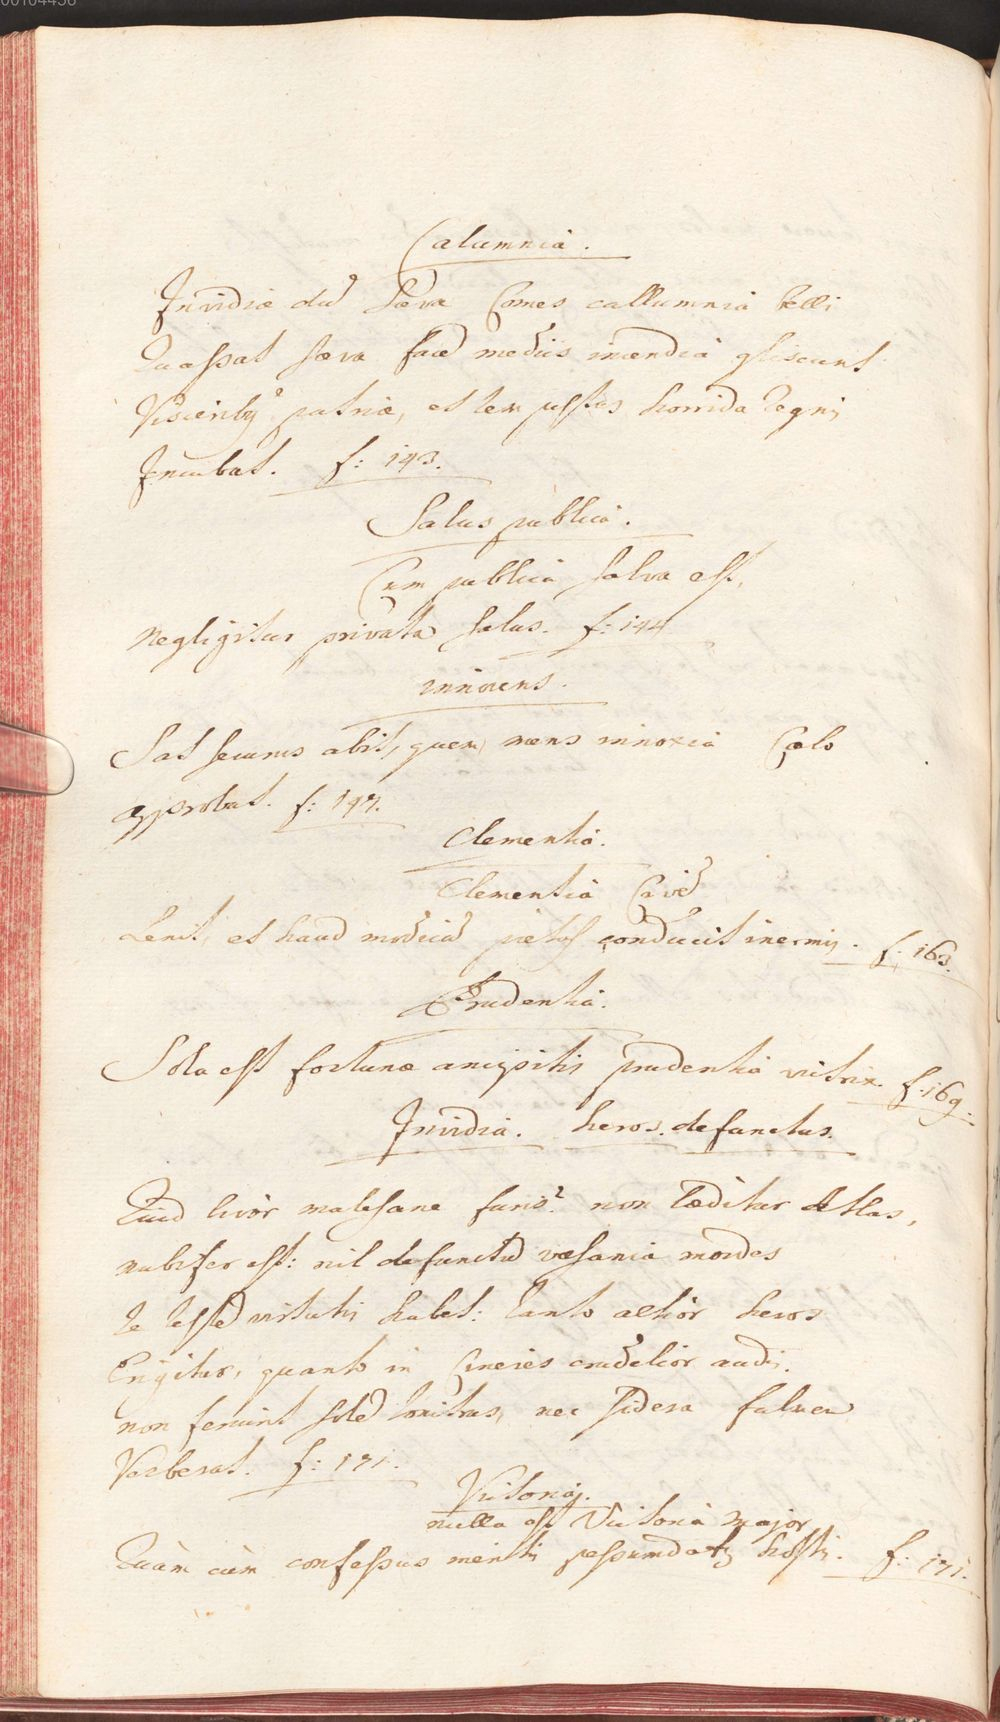 00104456
Calumnia.
Invidiæ dum sæva Comes callumnia belli
Quassat sæva facem mediis incendia gliscunt
Visceribus patriæ, et tem pestas horrida Regni
Incubat. f: 143.
Salus publica.
Cum publica salva est,
Negligitur privata salus. f: 144
innocens.
Sat securus abit, quem mens innoxia Cælo
approbat. f: 147.
Clementia.
Clementia Cædem
Lenit, et haud modicam pietas conducit inermis. f: 163.
Prudentia.
Sola est fortunæ ancipitis prudentia victrix. f. 169.
Invidia. heros defunctus.
Quid livòr malesane furis? non læditur Atlas,
nubifer est: nil defunctum væsania mordes
Te testem virtutis habet: tanto altiòr heros
Erigitur, quanto in Cineres crudelior audis.
non feriunt solem tonitrus, nec sidera fulmen
Verberat. f: 171.
Victoria.
nulla est Victoria major
Quàm cùm confessus mentis pessumdatus hostis. f: 171.